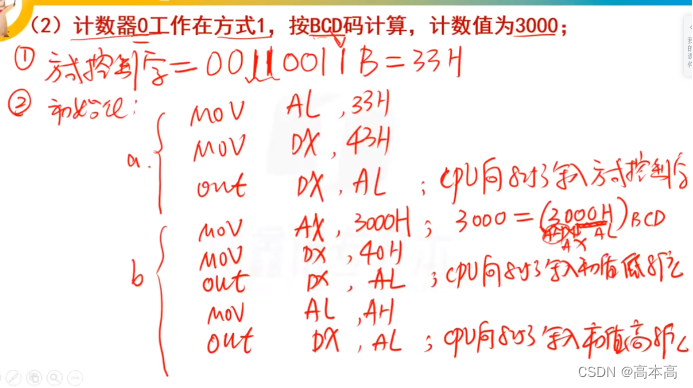 (2)计数器0工作在方式1，按BCD码计算，计数值为3000；
① 方式控制字=00110011B=33H
② 初始化：
a. MOV AL,33H
MOV DX,43H
out DX,AL ;CPU向8253写入方式控制字
b MOV AX,3000H; 3000=(3000H)BCD
AH AL
AX
MOV DX,40H
out DX,AL ;CPU向8253写入初值低8位
MOV AL,AH
out DX,AL ;CPU向8253写入初值高8位
CSDN @高本高